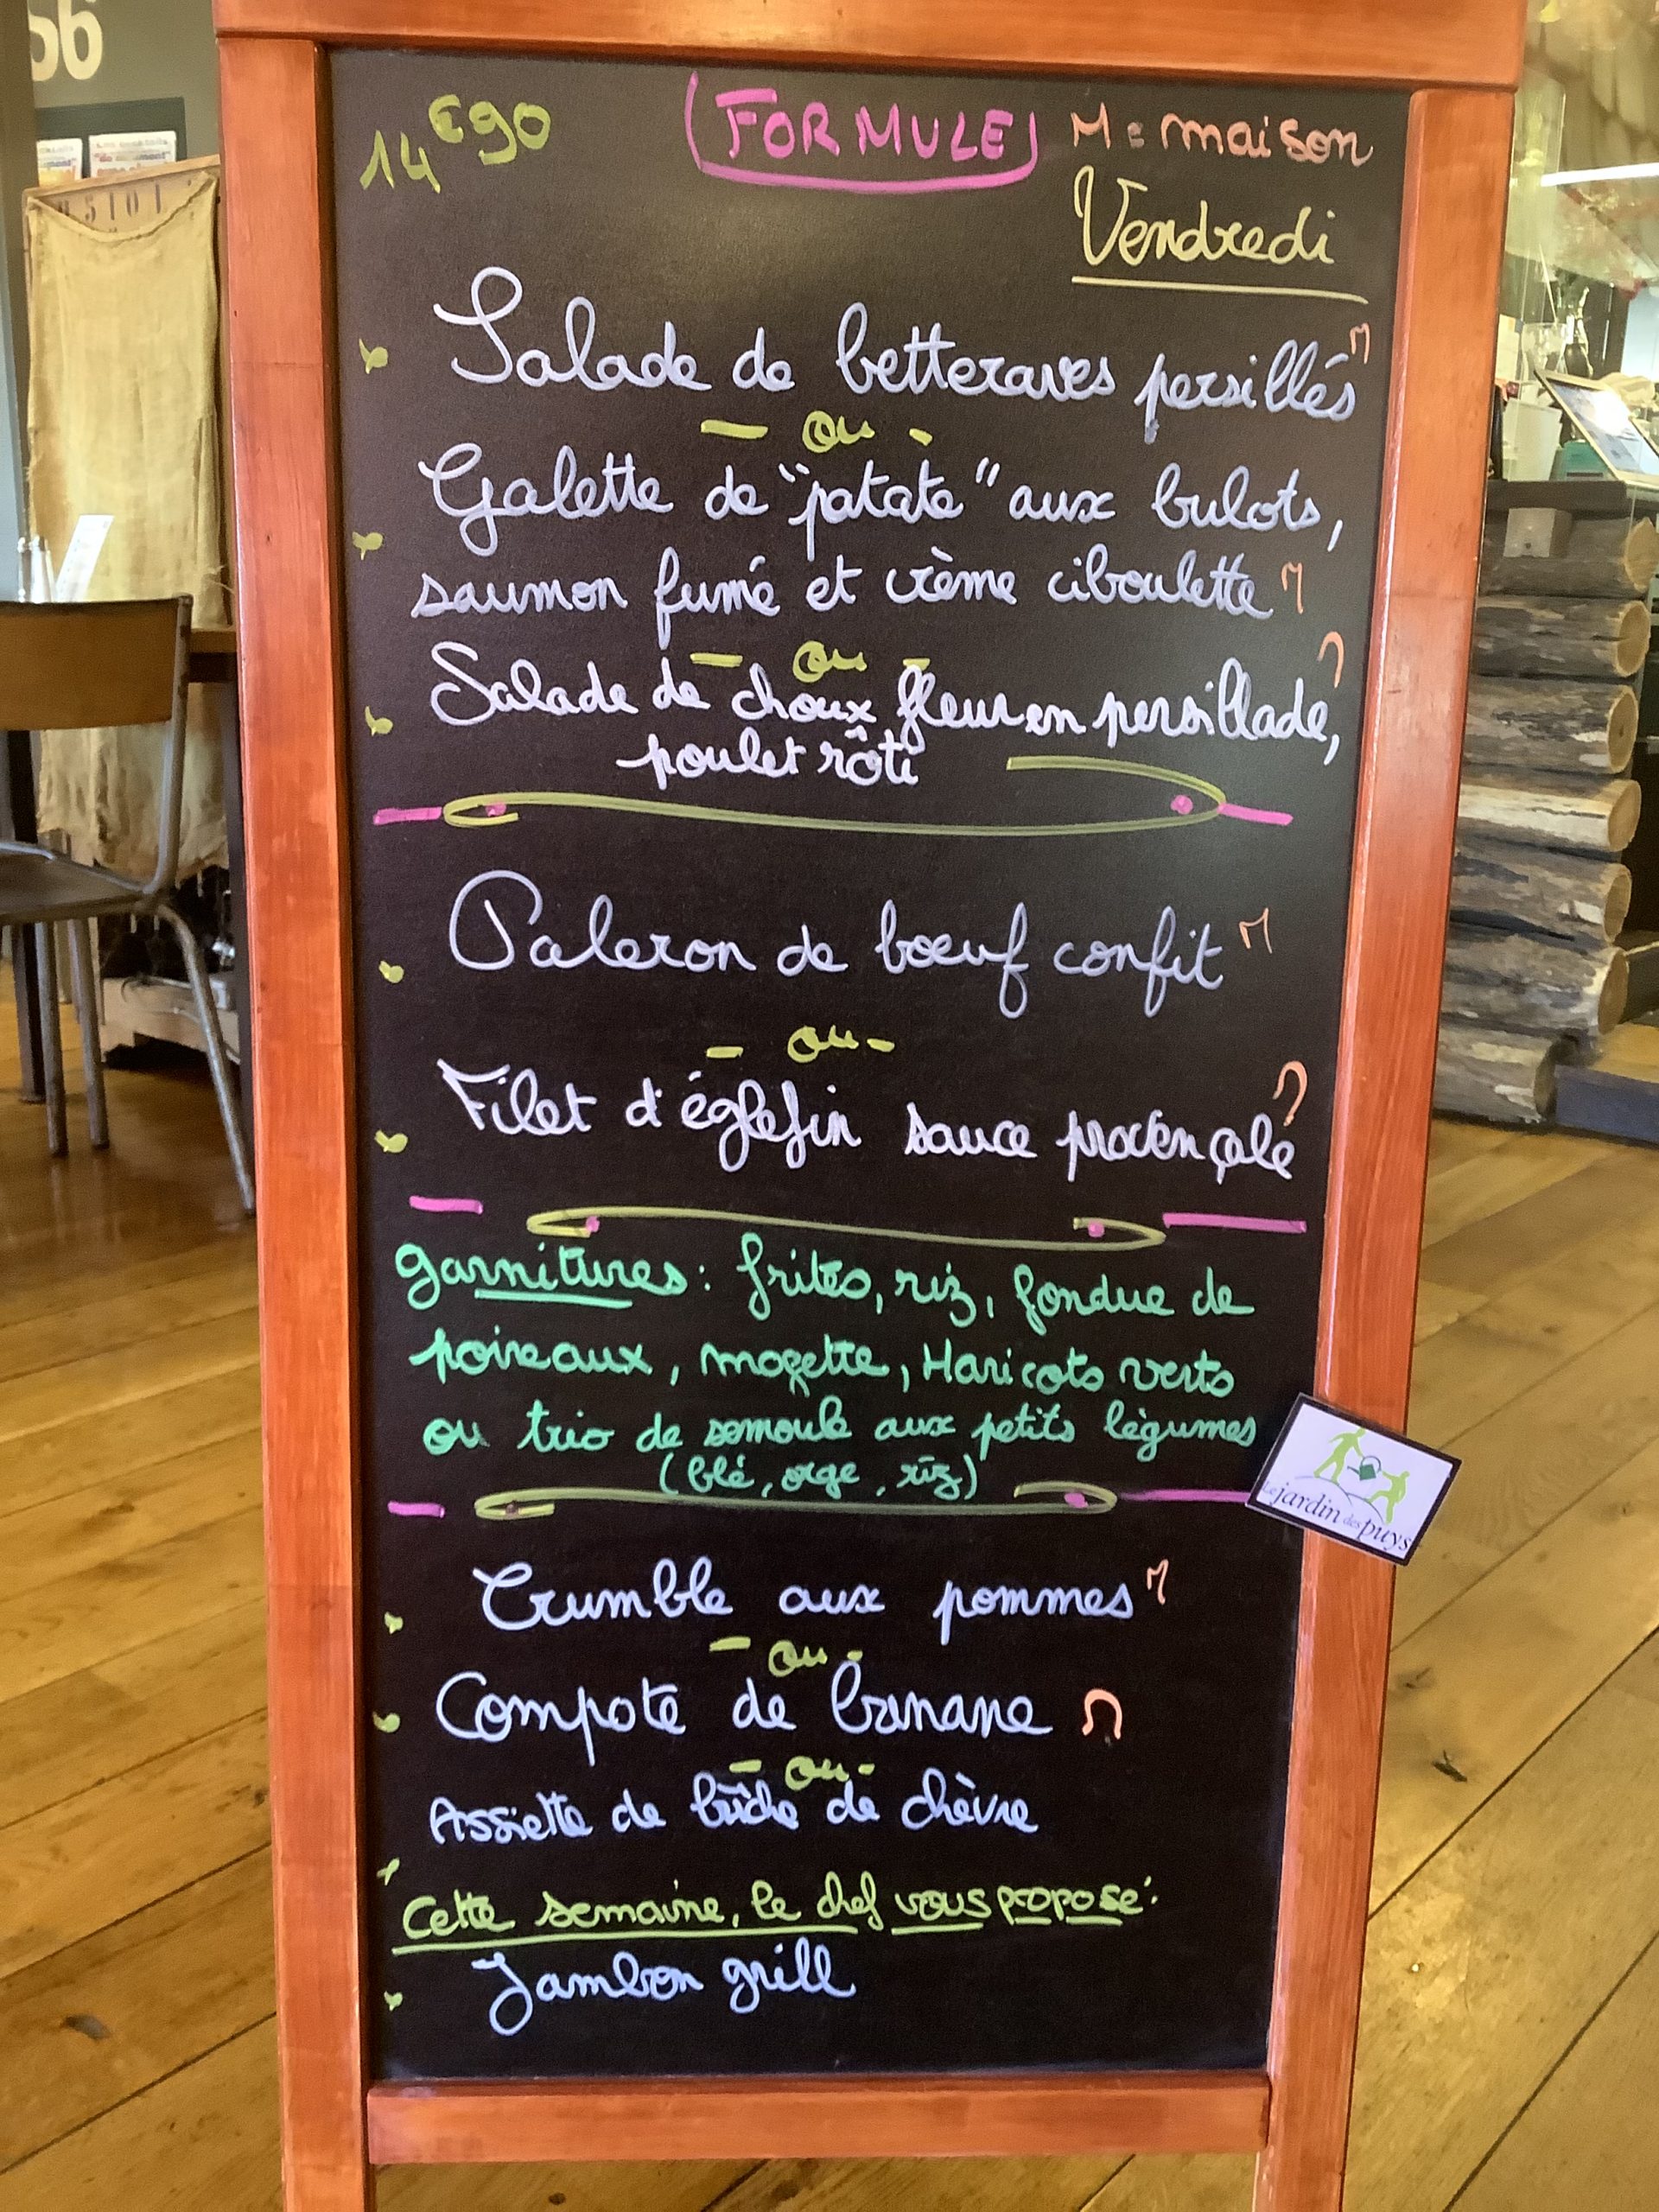 56
14€90
FORMULE
M = maison
Vendredi
Salade de betteraves persillés M
- ou -
Galette de "patate" aux bulots,
saumon fumé et crème ciboulette M
- ou -
Salade de choux fleur en persillade, M
poulet rôti
Paleron de boeuf confit M
- ou -
Filet d'églefin sauce provençale M
garnitures : frites, riz, fondue de
poireaux, mogette, Haricots verts
ou trio de semoule aux petits légumes
(blé, orge, riz)
Le jardin des puys
Crumble aux pommes M
- ou -
Compote de banane M
- ou -
Assiette de bûche de chèvre
Cette semaine, le chef vous propose :
Jambon grill